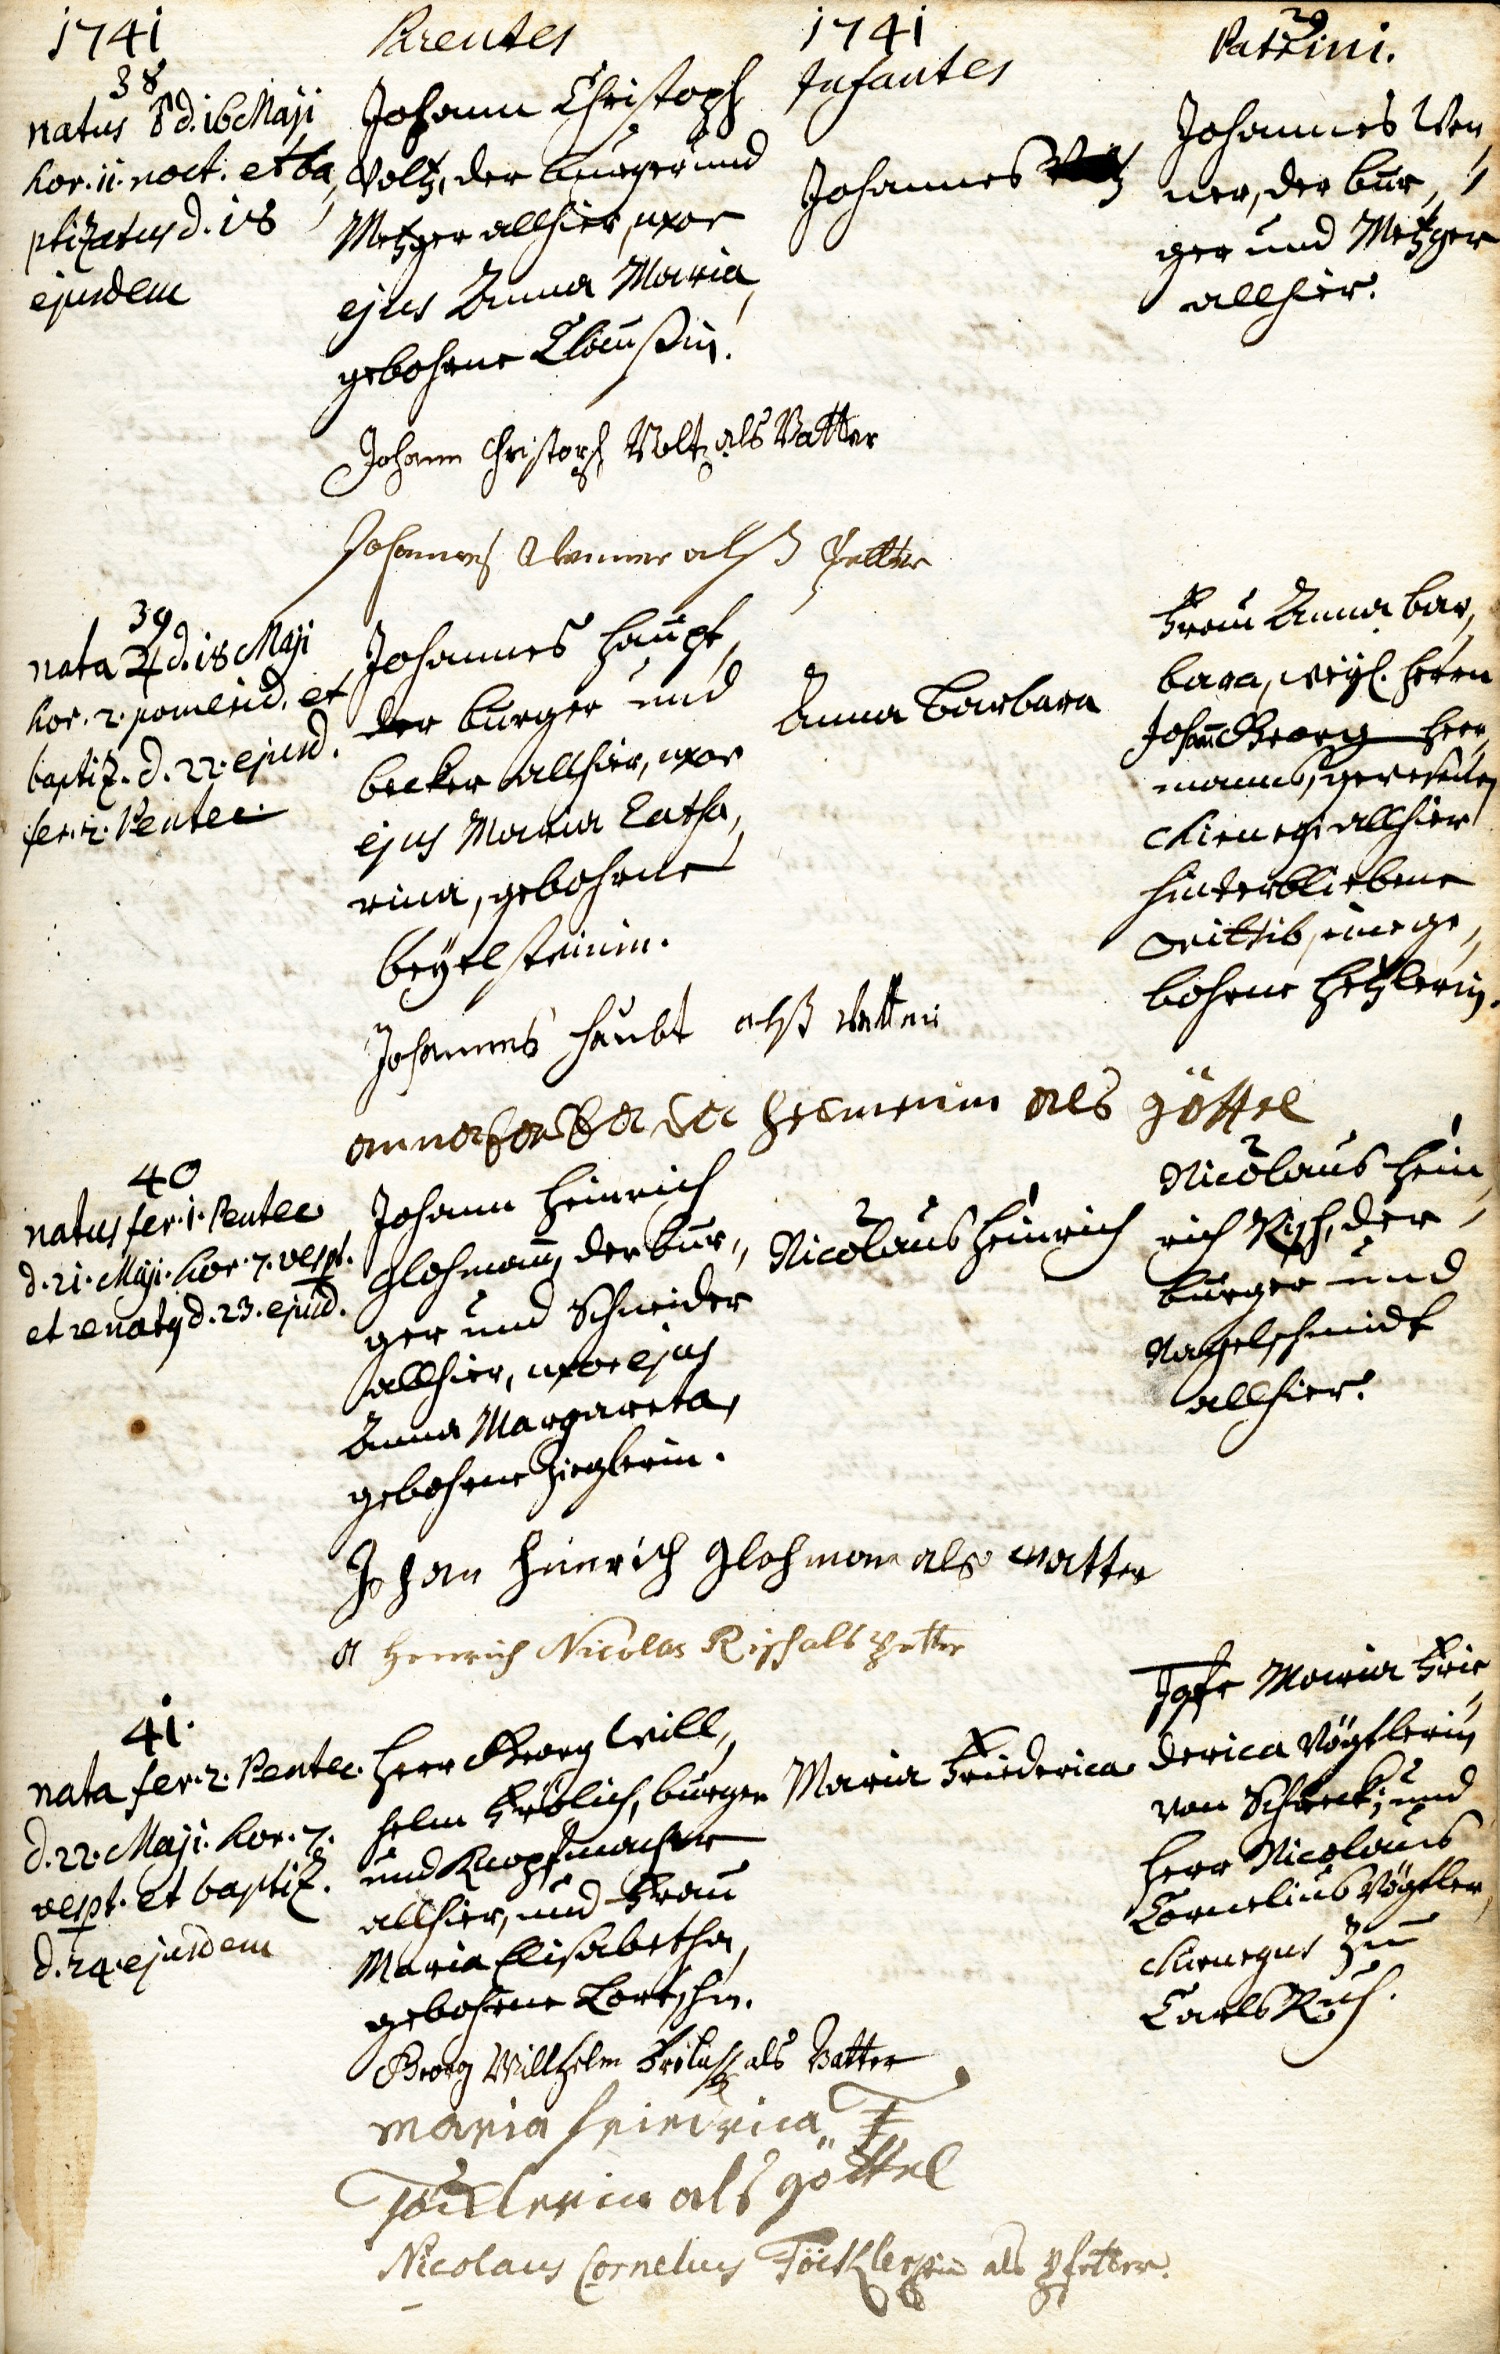 1741
Parentes
1741
Infantes
29
Patrini.
38
natus ♂ d. 16 Maji
hor. 11. noct. et ba,
ptizatus d. 18
ejusdem
Johann Christoph
Voltz, der burger und
Metzger allhier, uxor
ejus Anna Maria,
gebohrne
Johannes
Johannes Wen,
ner, der bur,
ger und Metzger
allhier.
Johann Christoph Voltz als Vatter
Johannes Wenner alß Petter
39
nata ♃ d. 18 Maji
hor. 2. pomerid. et
baptiz. d. 22. ejusd.
fer. 2. Pentec.
Johannes Haupt,
der burger und
becker allhier, uxor
ejus Maria Catha,
rina, gebohrne
beyelsteinin.
Anna Barbara
Frau Anna bar,
bara, weyl. Herrn
Johann Georg Herr,
manns, gewesenen
Chirurgi allhier
hinterbliebene
Wittib, eine ge,
bohrne Hetzlerin.
Johannes Haubt alß Vatter
als göttel
40
natus fer. 1. Pentec
d. 21. Maji. hor. 7. vespt.
et renatus d. 23. ejusd.
Johann Heinrich
Glohmann, der bur,
ger und Schneider
allhier, uxor ejus
Anna Margareta,
gebohrne Zieglerin.
2 1
Nicolaus Heinrich
2 1
Nicolaus Hein,
rich Risch, der
burger und
Nagelschmidt
allhier.
Johan Hinrich Glohman als Vatter
Henrich Nicolas Risch als Petter
41.
nata fer. 2. Pentec.
d. 22. Maji. hor. 7.
vespt. et baptiz.
d. 24. ejusdem
Herr Georg Will,
helm Frölich, burger
und Knopfmacher
allhier, und Frau
Maria Elisabetha,
gebohrne
Maria Friederica
Jgfr Maria Frie,
derica Vögtlerin
von Schreck, und
Herr Nicolaus
Cornelius Vögtler,
Chirurgus zu
Carls Ruh.
Georg Willhelm Frölich als Vatter
maria friedrica
als göttel
Nicolaus Cornelius als Pfetter.